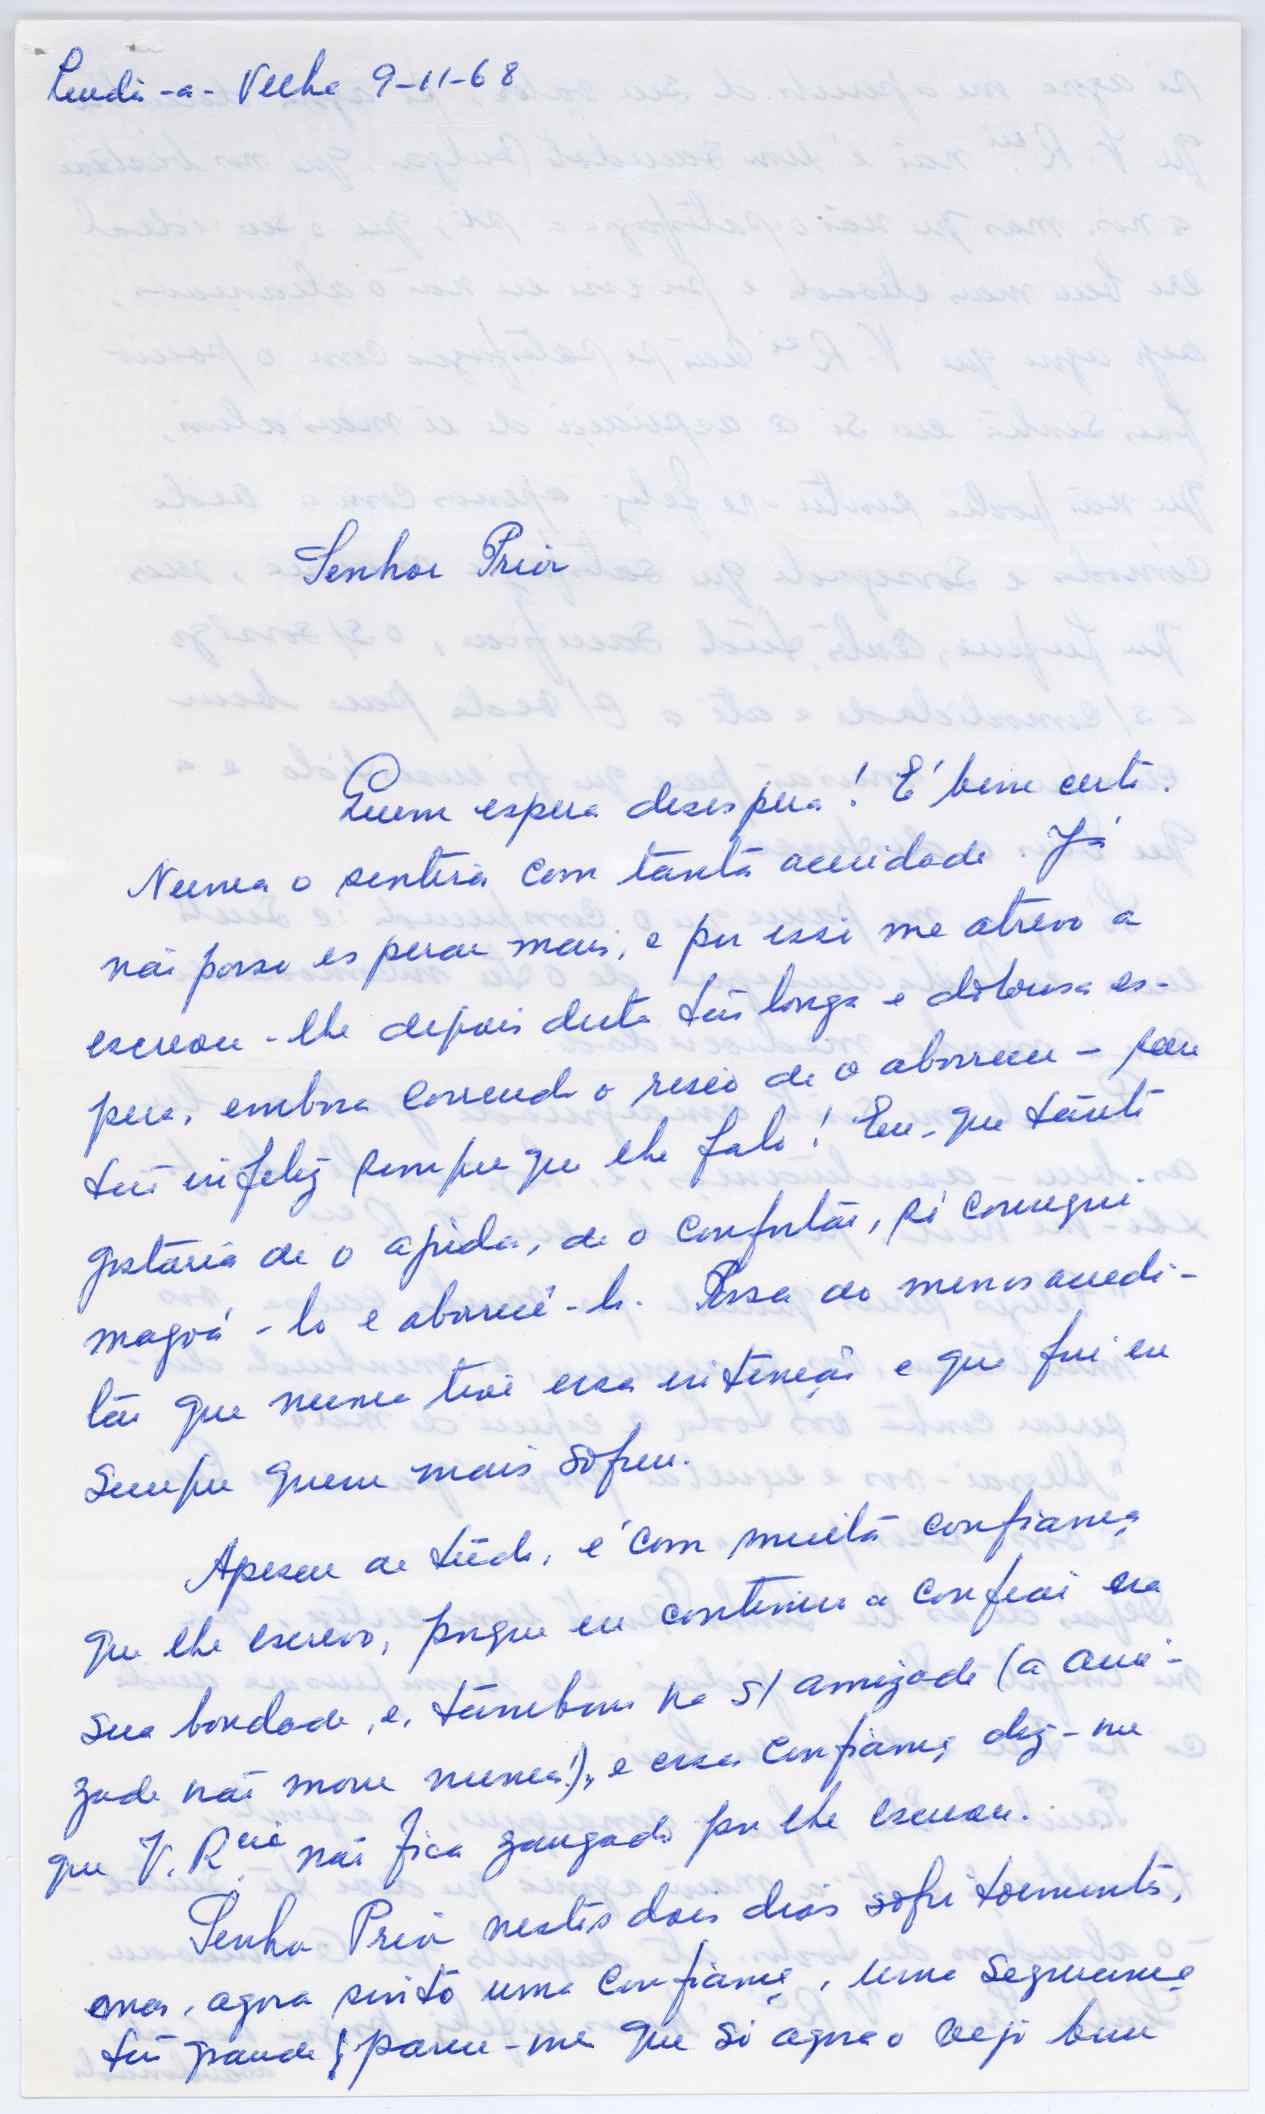 Linda-a-Velha 9-11-68
Senhor Prior
Quem espera desespera! É bem certo.
Nunca o sentira com tanta acuidade. Já
não posso esperar mais, e por isso me atrevo a
escrever-lhe depois desta tão longa e dolorosa es-
pera, embora correndo o receio de o aborrecer - sou
tão infeliz sempre que lhe falo! Eu, que tanto
gostaria de o ajudar, de o confortar, só consegui
magoá-lo e aborrecê-lo. Possa ao menos acredi-
tar que nunca tive essa intenção e que fui eu
sempre quem mais sofreu.
Apesar de tudo, é com muita confiança
que lhe escrevo, porque eu continuo a confiar na
sua bondade, e, também na s/ amizade (a ami-
zade não morre nunca!), e essa confiança diz-me
que V. Rcia não fica zangado por lhe escrever.
Senhor Prior nestes dois dias sofri tormentos,
mas, agora sinto uma confiança, uma segurança
tão grande! parece-me que só agora o vejo bem